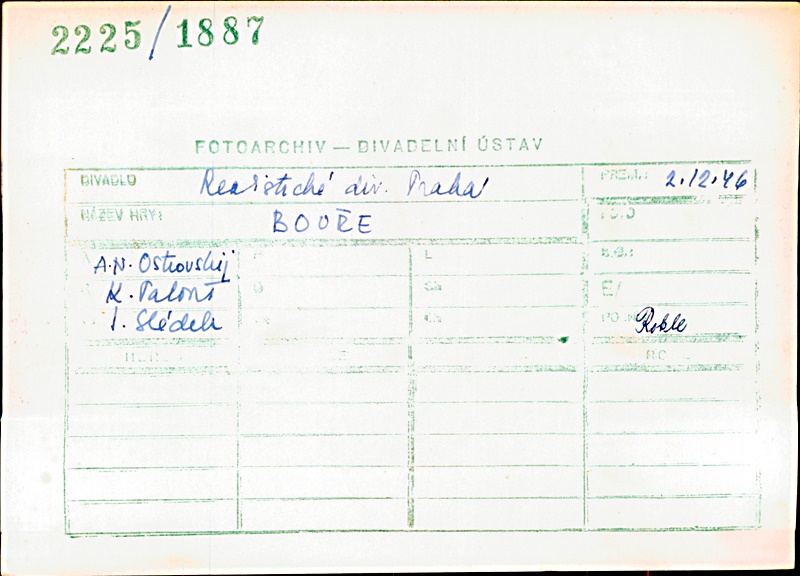 2225/1887
FOTOARCHIV — DIVADELNÍ ÚSTAV
DIVADLO Realistické div. Praha PREM.: 2.12.46
NÁZEV HRY: BOUŘE
A.N. Ostrovskij L
K. Palouš
J. Sládek Roble